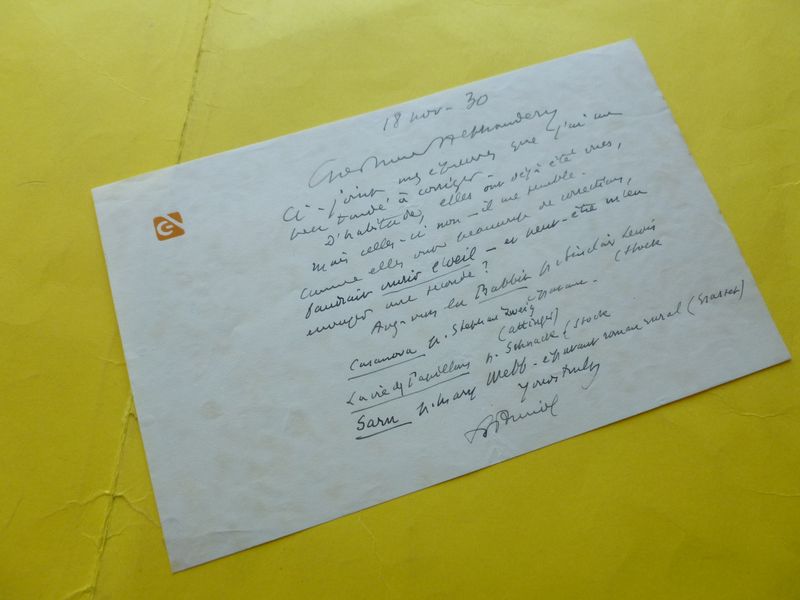 18 nov - 30
Ci-joint mes épreuves que j'ai un
peu tardé à corriger -
D'habitude, elles ont déjà été vues,
mais celles-ci non - il me semble.
Comme elles ont beaucoup de corrections,
faudrait ouvrir l'œil - et peut-être m'en
envoyer une seconde?
Avez-vous lu Babbitt p. Sinclair Lewis
(Stock
Casanova p. Stephan Zweig
(Attinger)
La vie des Papillons p. Schnack (Stock
Sarn p. Mary Webb - épatant roman rural (Grasset)
Yours truly